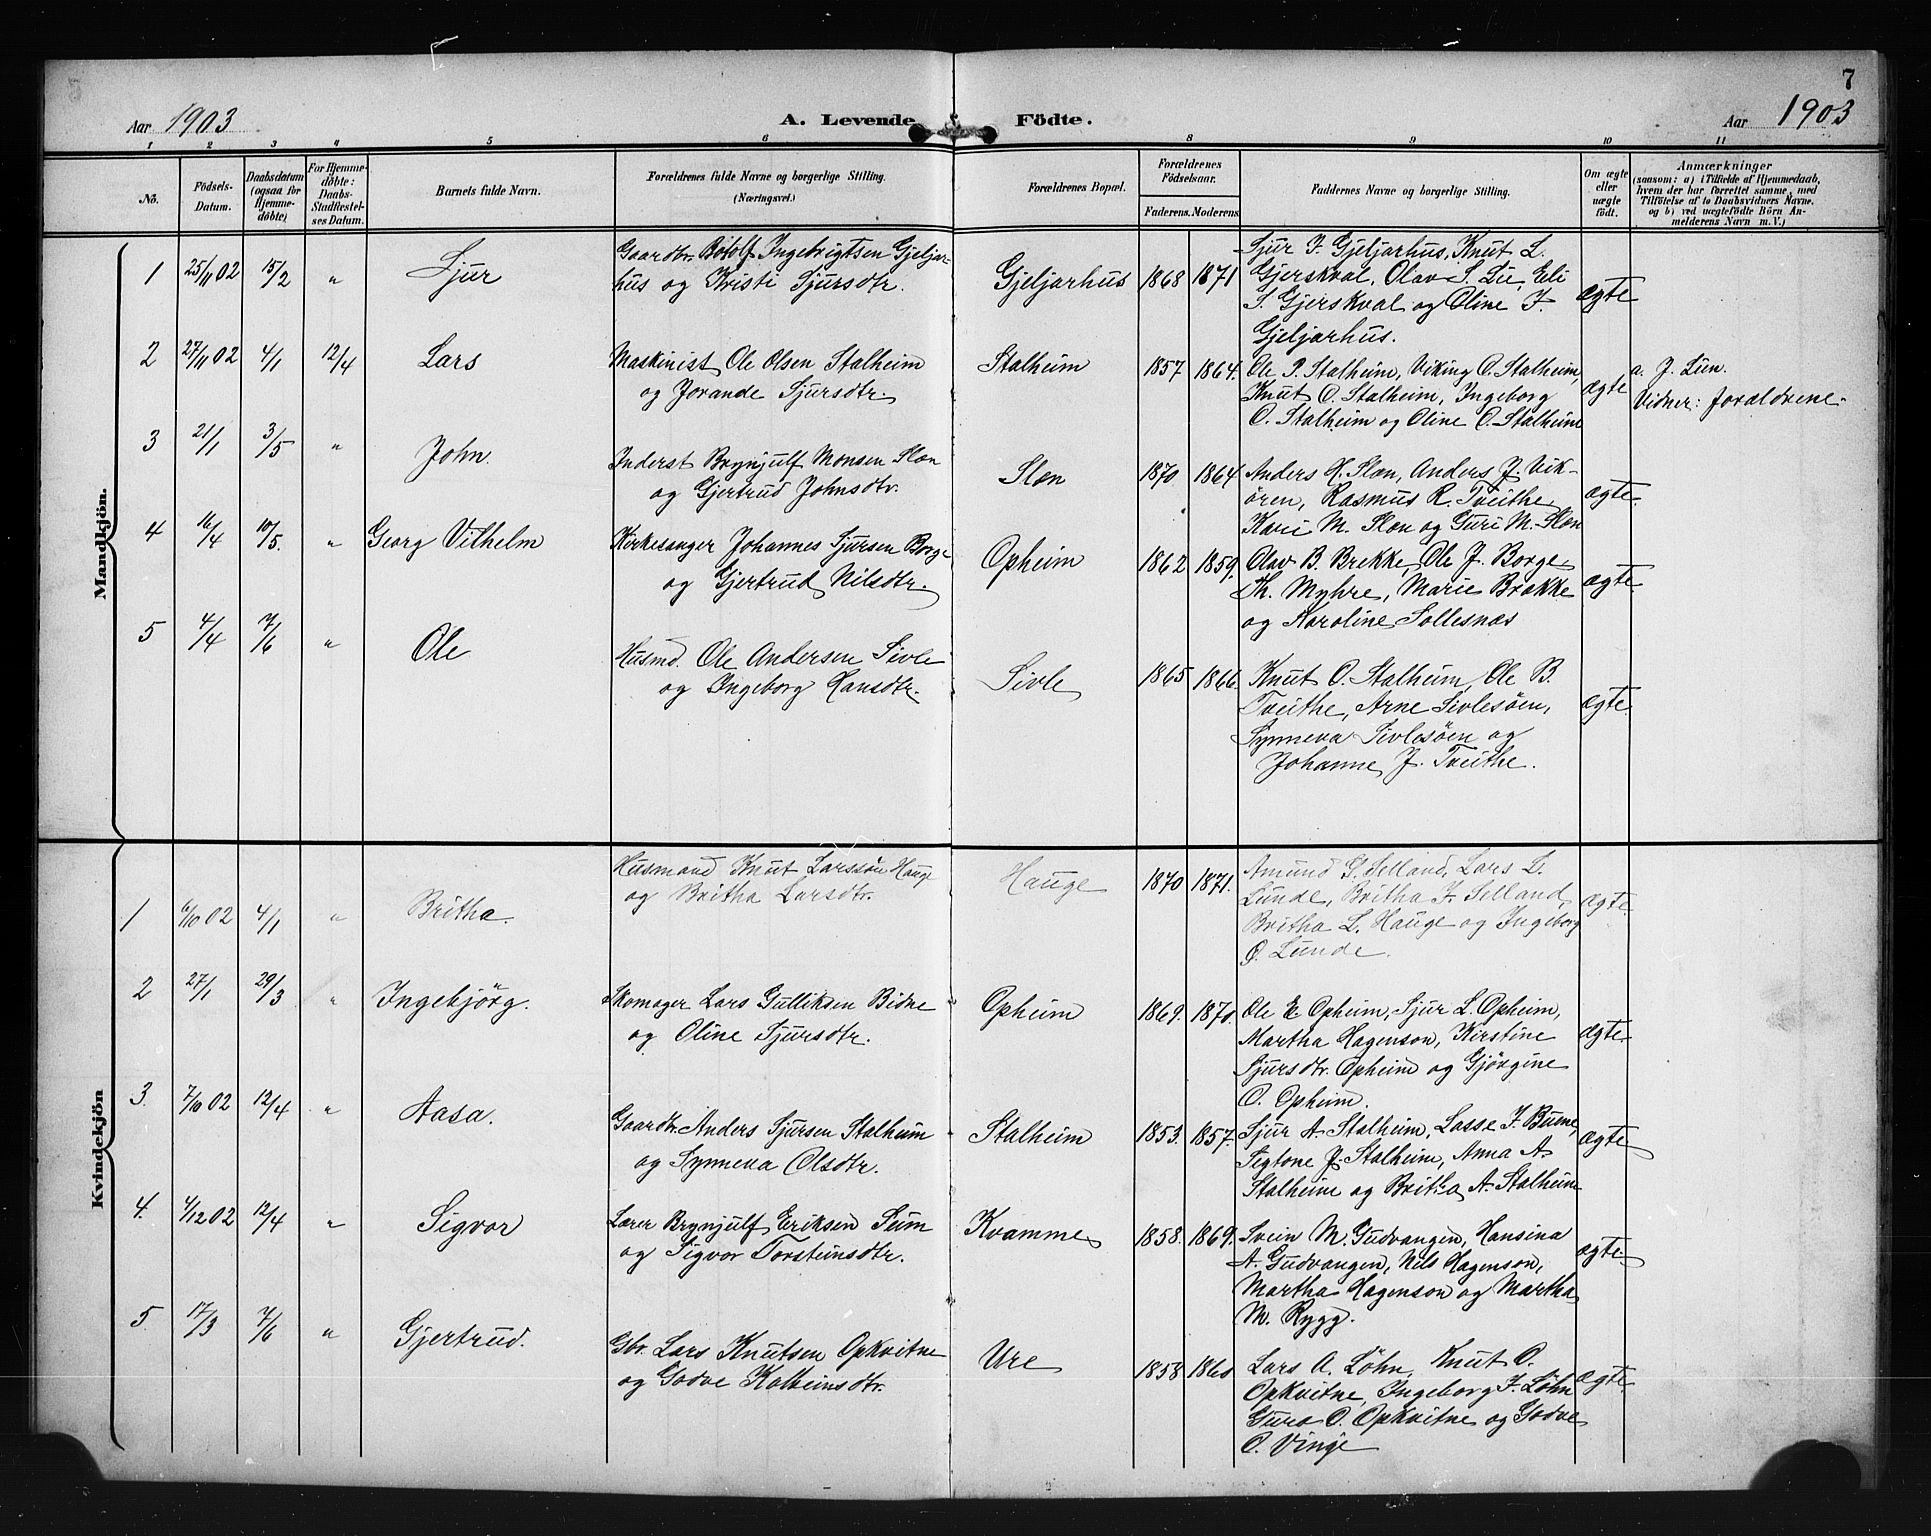 7
Aar 1903
A. Levende Födte.
Aar 1903
1 2 3 4 5 6 8 9 10 11
No.
Födsels-Datum.
Daabsdatum (ogsaa for Hjemmedöbte)
For Hjemmedöbte: Daabs-Stadfestelses Datum.
Barnets fulde Navn.
Forældrenes fulde Navne og borgerlige Stilling.
(Næringsvei.)
Forældrenes Bopæl.
Forældrenes Födselsaar.
Faderens. Moderens.
Faddernes Navne og borgerlige Stilling.
Om ægte eller uægte födt.
Anmærkninger
(saasom: a) i Tilfælde af Hjemmedaab,
hvem der har forrettet samme, med
Tilföielse af to Daabsvidners Navne.
og b) ved uægtefödte Börn An-
melderens Navn m. V.)
Mandkjön.
1 25/11 02 15/2 " Sjur
Gaardbr. Botolf Ingebrigtsen Gjeljar-
hus og Kristi Sjursdtr.
Gjeljarhus 1868 1871
Sjur I. Gjeljarhus, Knut L.
Gjerskval, Olav S. Lie, Eli
S. Gjerskval og Oline I.
Gjeljarhus.
ægte
2 27/11 02 4/1 12/4 Lars
Maskinist Ole Olsen Stalheim
og Jorande Sjursdtr.
Stalheim 1857 1864.
Ole P. Stalheim, Viking O. Stalheim,
Knut O. Stalheim, Ingeborg
O. Stalheim og Oline O. Stalheim
ægte
a. J. Lien.
Vidner: Forældrene.
3 21/1 3/5 " John.
Inderst Brynjulf Monsen Slæn
og Gjertrud Johnsdtr.
Slæn 1870 1864
Anders H. Slæn, Anders J. Vik-
ören, Rasmus R. Tveithe,
Kari M. Slæn og Guri M. Slæn
ægte.
4 16/4 10/5. " Georg Vilhelm
Kirkesanger Johannes Sjursen Borge
og Gjertrud Nilsdtr.
Opheim 1862 1859.
Olav B. Brekke, Ole J. Borge,
Th. Myhre, Marie Brække
og Karoline Sollesnæs
ægte.
5 4/4 7/6 " Ole
Husmd. Ole Andersen Sivle
og Ingeborg Hansdtr.
Sivle 1865 1866.
Knut O. Stalheim, Ole B.
Tveithe, Arne Sivlesöen,
Synneva Sivlesöen og
Johanne J. Tveithe.
ægte.
Kvindekjön
1 6/10 02 4/1 " Britha.
Husmand Knut Larssön Hauge
og Britha Larsdtr.
Hauge 1870 1871.
Amund G. Selland, Lars L.
Lunde, Britha I. Selland,
Britha L. Hauge og Ingeborg
O. Lunde.
ægte.
2 27/1 29/3 " Ingebjörg.
Skomager Lars Gulliksen Bidne
og Oline Sjursdtr.
Opheim 1869. 1870.
Ole E. Opheim, Sjur L. Opheim,
Martha Hagenson, Kirstine
Sjursdtr. Opheim og Gjörgine
O. Opheim.
ægte.
3. 7/10 02 12/4 " Aasa.
Gaardbr. Anders Sjursen Stalheim
og Synneva Olsdtr.
Stalheim 1853. 1857.
Sjur A. Stalheim, Lasse I. Bume,
Sigtone J. Stalheim, Anna A.
Stalheim og Britha A. Stalheim
ægte
4. 4/12 02 12/4 " Sigvor
Lærer Brynjulf Eriksen Seim
og Sigvor Torsteinsdtr.
Kvamme 1858. 1869.
Svein M. Gudvangen, Hansina
A. Gudvangen, Nils Hagenson,
Martha Hagenson og Martha
M. Rygg.
ægte
5. 17/3 7/6 " Gjertrud.
Gbr. Lars Knutsen Opkvitne
og Godve Kolbeinsdtr.
Ure 1858 1860
Lars A. Löhn, Knut O.
Opkvitne, Ingeborg I. Löhn
Guro O. Opkvitne og Godve
O. Vinje
ægte